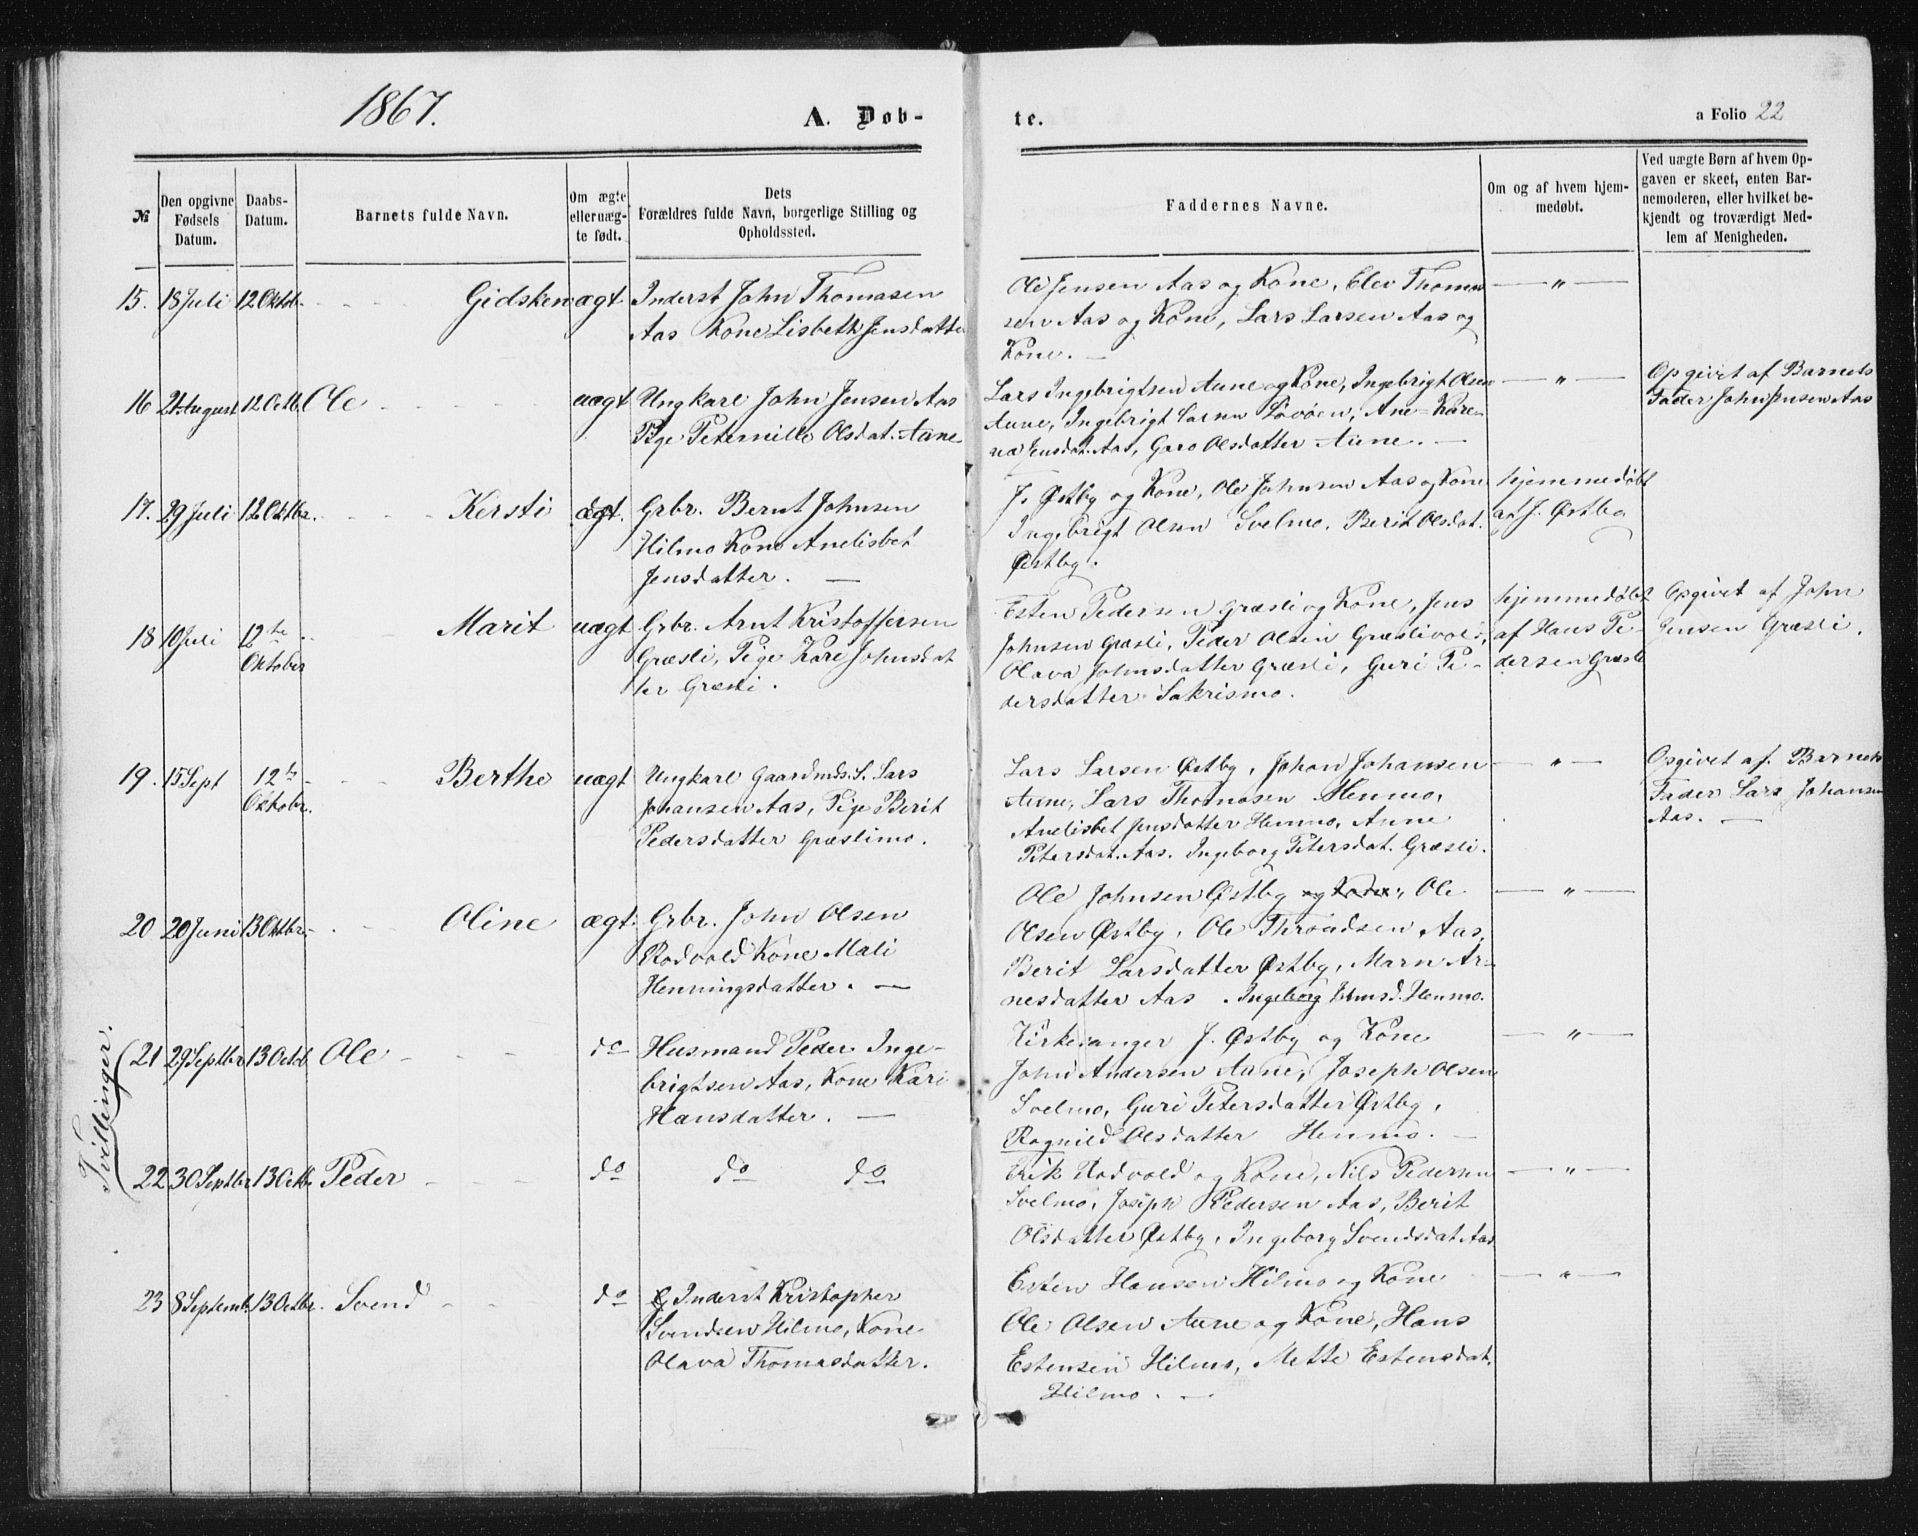 1867.
A. Døb-
te.
a Folio 22
№
Den opgivne
Fødsels
Datum.
Daabs-
Datum.
Barnets fulde Navn.
Om ægte
eller uæg-
te født.
Dets
Forældres fulde Navn, borgerlige Stilling og
Opholdssted.
Faddernes Navne.
Om og af hvem hjem-
medøbt.
Ved uægte Børn af hvem Op-
gaven er skeet, enten Bar-
nemoderen, eller hvilket be-
kjendt og troværdigt Med-
lem af Menigheden.
15. 18 Juli 12 Oktob. Gidsken ægt
Inderst John Thomasen
Aas Kone Lisbeth Jensdatter
Ole Jensen Aas og Kone, Elev Thoma
sen Aas og Kone, Lars Larsen Aas og
Kone. —
— " —
16 21 August 12 Octb. Ole uægt
Ungkarl John Jensen Aas
Pige Peternille Olsdat. Aune
Lars Ingebrigtsen Aune og Kone, Ingebrigt Olsen
Aune, Ingebrigt Larsen Løvøen, Ane-Kare-
na Jensdat. Aas, Guro Olsdatter Aune. —
— " —
Opgivet af Barnets
Fader John Jensen Aas
17. 29 Juli 12 Oktbr. Kersti ægt.
Grbr. Bernt Johnsen
Hilmo Kone Anelisbet
Jensdatter. —
J. Østby og Kone, Ole Johnsen Aas og Kone
Ingebrigt Olsen Svelmo, Berit Olsdat.
Østby.
hjemmedøbt
af J. Østby
18 10 Juli 12te Oktober Marit uægt
Grbr. Arnt Kristoffersen
Græsli, Pige Kare Johnsdat
ter Græsli.
Esten Pedersen Græsli og Kone, Jens
Johnsen Græsli, Peder Olsen Græslivold,
Olava Johnsdatter Græsli, Guri Pe-
dersdatter Sakrismo.
hjemmedøbt
af Hans Pe-
dersen Græsli
Opgivet af John
Jensen Græsli.
19. 15 Sept 12te Oktobr. Berthe uægt
Ungkarl Gaardmds. S. Lars
Johansen Aas, Pige Berit
Pedersdatter Græslimo.
Lars Larsen Østby, Johan Johansen
Aune, Lars Thomasen Henmo,
Anelisbet Jensdatter Henmo, Anne
Petersdat. Aas. Ingeborg Petersdat. Græsli.
— " —
Opgivet af Barnets
Fader Lars Johansen
Aas. —
20 20 Juni 13 Oktbr. Oline ægt.
Grbr. John Olsen
Rodvold Kone Mali
Henningsdatter. —
Ole Johnsen Østby og Kone, Ole
Olsen Østby, Ole Throndsen Aas,
Berit Larsdatter Østby, Marn Ar-
nesdatter Aas. Ingeborg Johnsd. Henmo.
— " —
Tvillinger.
21 29 Septbr 13 Octb Ole do
Husmand Peder Inge-
brigtsen Aas, Kone Kari
Hansdatter. —
Kirkesanger J. Østby og Kone
John Andersen Aune, Joseph Olsen
Svelmo, Guri Petersdatter Østby,
Ragnild Olsdatter Henmo. —
— " —
22 30 Septbr 13 Octb. Peder do
do do
Erik Rodvold og Kone, Nils Pedersen
Svelmo, Joseph Pedersen Aas, Berit
Olsdatter Østby, Ingeborg Svendsdat Aas
— " —
23 8 Septemb. 13 Octbr. Svend do
Inderst Kristopher
Svendsen Hilmo, Kone
Olava Thomasdatter.
Esten Hansen Hilmo og Kone
Ole Olsen Aune og Kone, Hans
Estensen Hilmo, Mette Estensdat.
Hilmo. —
— " —